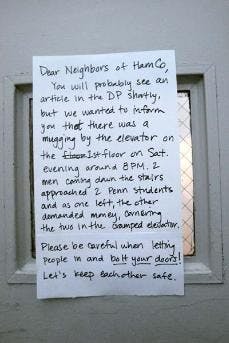 Dear Neighbors of HamCo,
You will probably see an
article in the DP shortly,
but we wanted to inform
you that there was a
mugging by the elevator on
the 1st floor on Sat.
evening around 8PM. 2
men coming down the stairs
approached 2 Penn students
and as one left, the other
demanded money, cornering
the two in the cramped elevator.
Please be careful when letting
people in and bolt your doors!
Let's keep eachother safe.